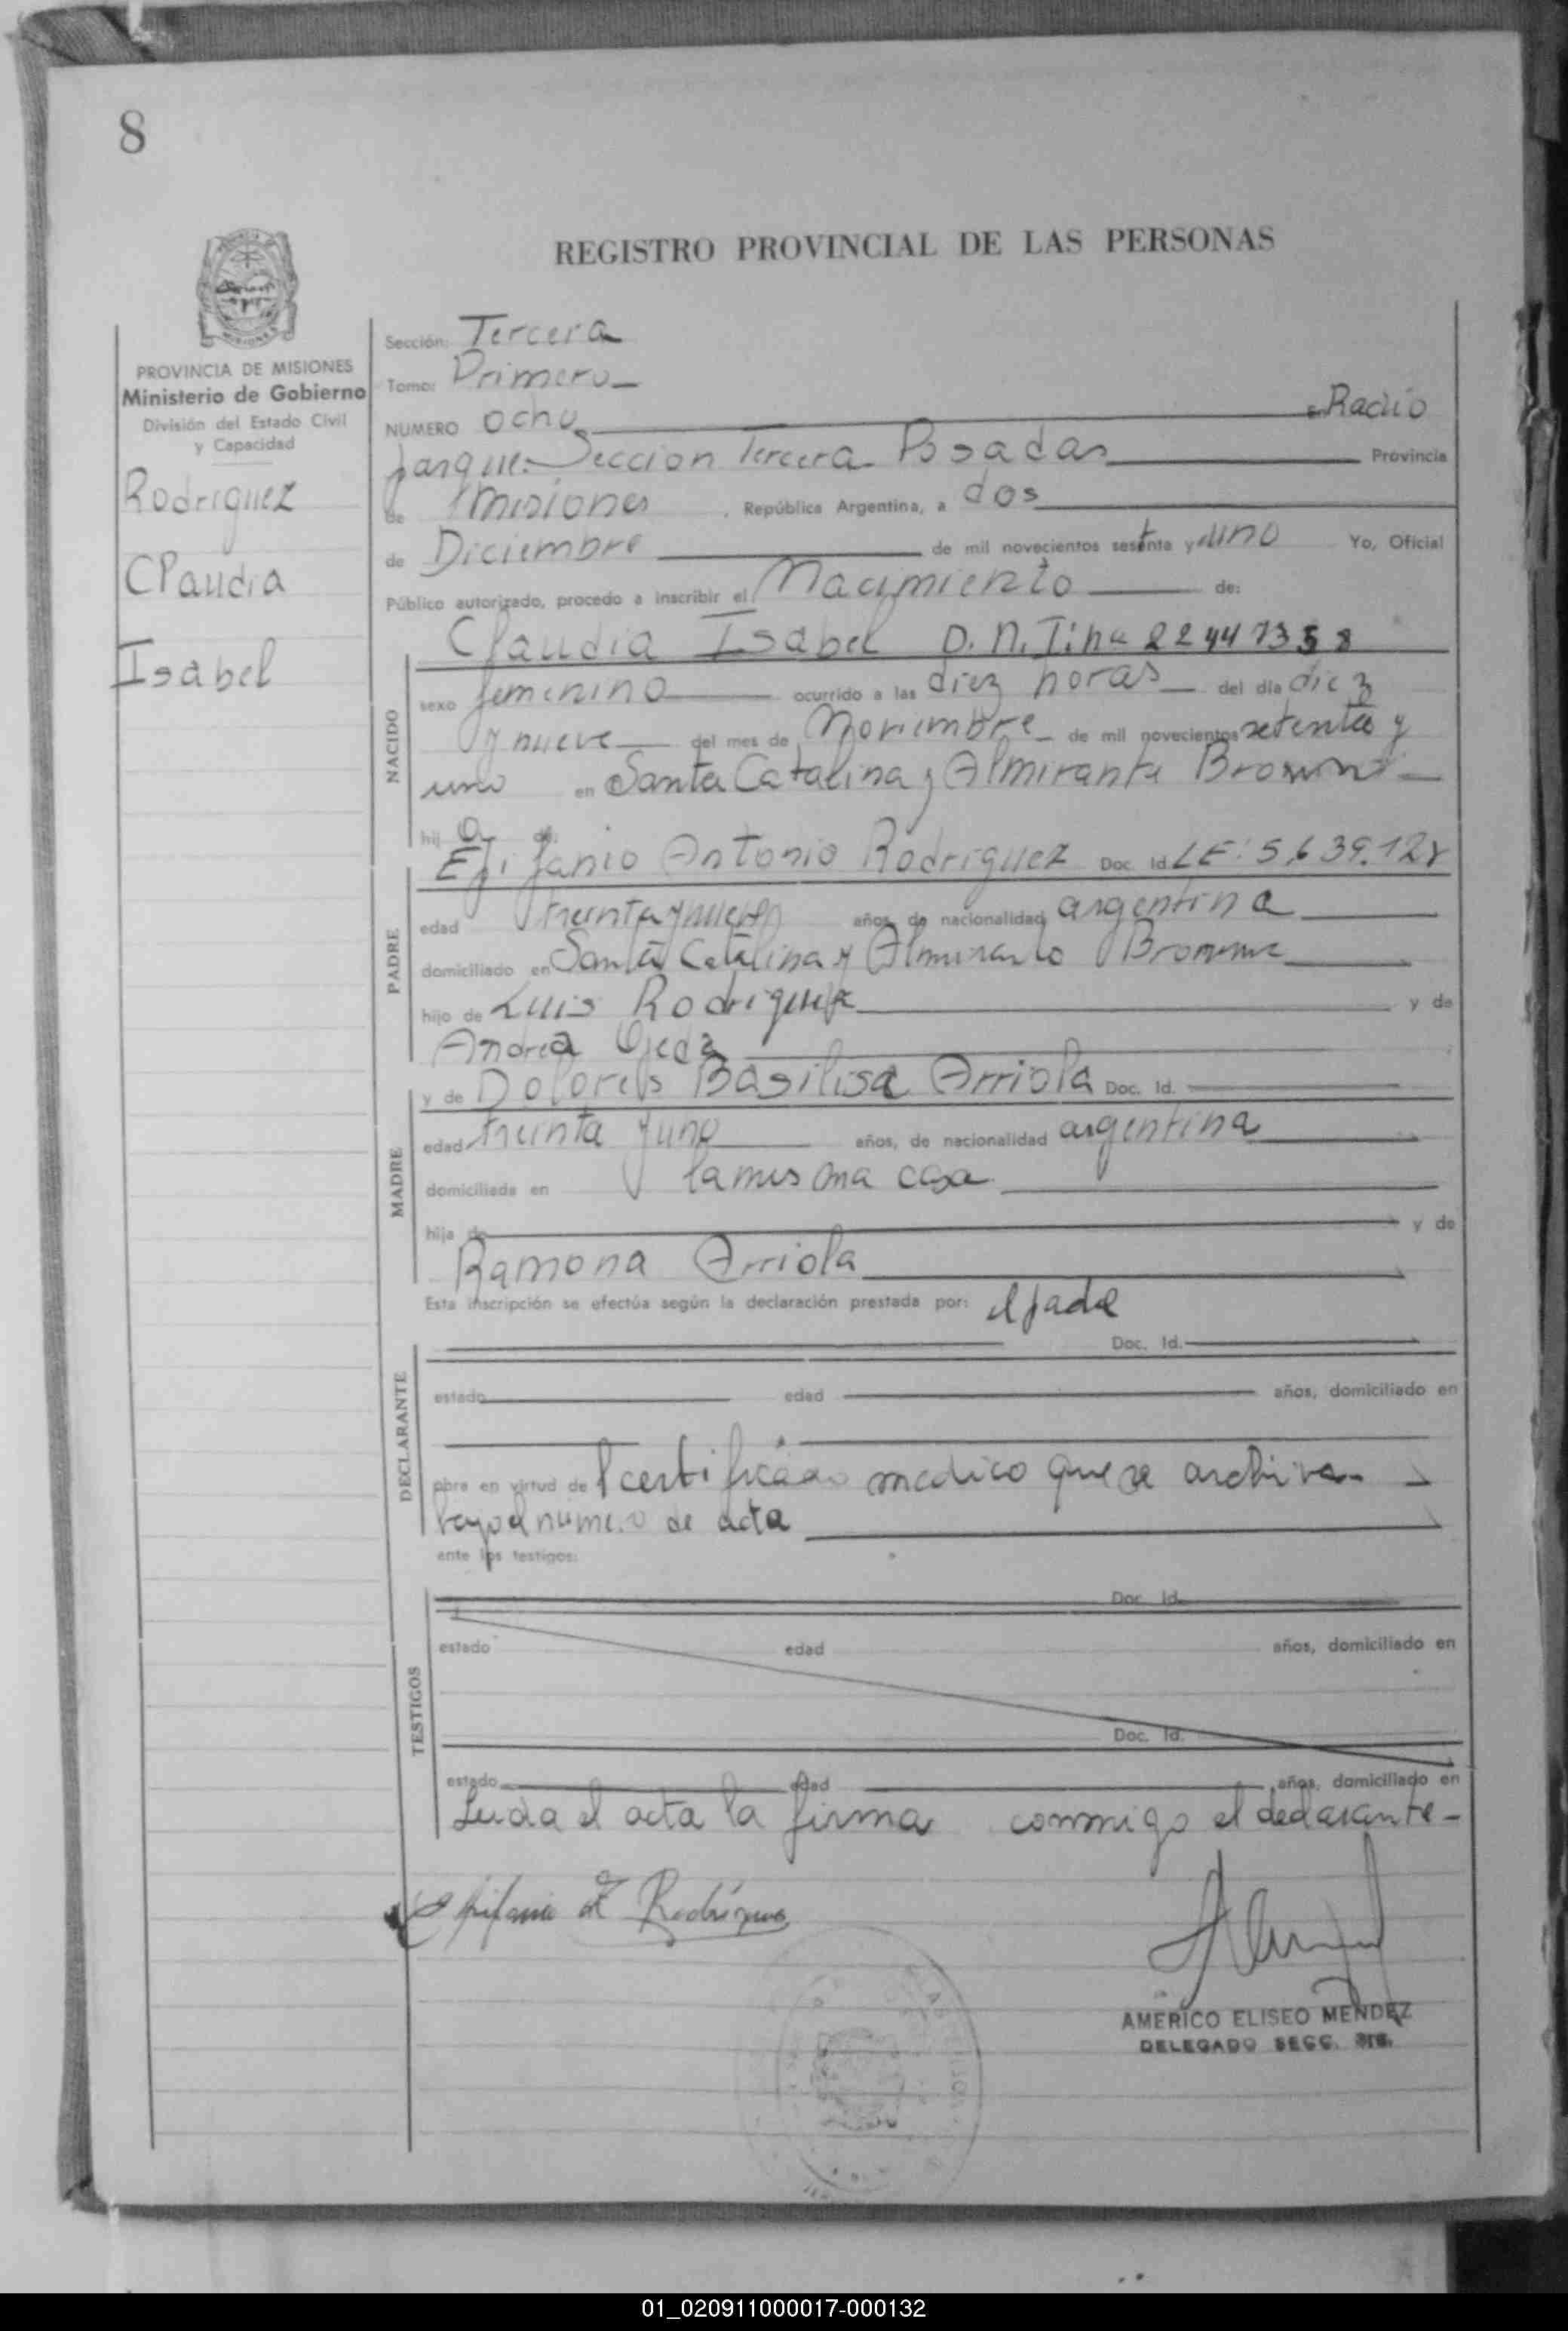 8
REGISTRO PROVINCIAL DE LAS PERSONAS
PROVINCIA DE MISIONES
Ministerio de Gobierno
División del Estado Civil
y Capacidad
Rodriguez
Claudia
Isabel
Sección: Tercera
Tomo: Primero
NUMERO ocho en Radio
parque. Seccion Tercera Posadas Provincia
de Misiones, República Argentina, a dos
de Diciembre de mil novecientos setenta y uno Yo, Oficial
Público autorizado, procedo a inscribir el Nacimiento de:
Claudia Isabel D.N.I. 22447358
NACIDO
sexo femenino ocurrido a las diez horas del día diez
y nueve del mes de Noviembre de mil novecientos setenta y
uno en Santa Catalina y Almirante Brown
hij a de
Epifanio Antonio Rodriguez Doc. Id. LE: 5.639.128
PADRE
edad treinta y nueve años, de nacionalidad argentina
domiciliado en Santa Catalina y Almirante Brown
hijo de Luis Rodriguez y de
Andrea Ojeda
MADRE
y de Dolores Basilisa Arriola Doc. Id.
edad treinta y uno años, de nacionalidad argentina
domiciliada en la misma casa
hija de y de
Ramona Arriola
Esta inscripción se efectúa según la declaración prestada por: el padre
DECLARANTE
Doc. Id.
estado edad años, domiciliado en
obra en virtud del certificado medico que se archiva
bajo el numero de acta
ante los testigos:
TESTIGOS
Doc. Id.
estado edad años, domiciliado en
Doc. Id.
estado edad años, domiciliado en
Leida el acta la firma conmigo el declarante-
Epifanio A Rodríguez
AMERICO ELISEO MENDEZ
DELEGADO SECC. 3ra.
01_020911000017-000132